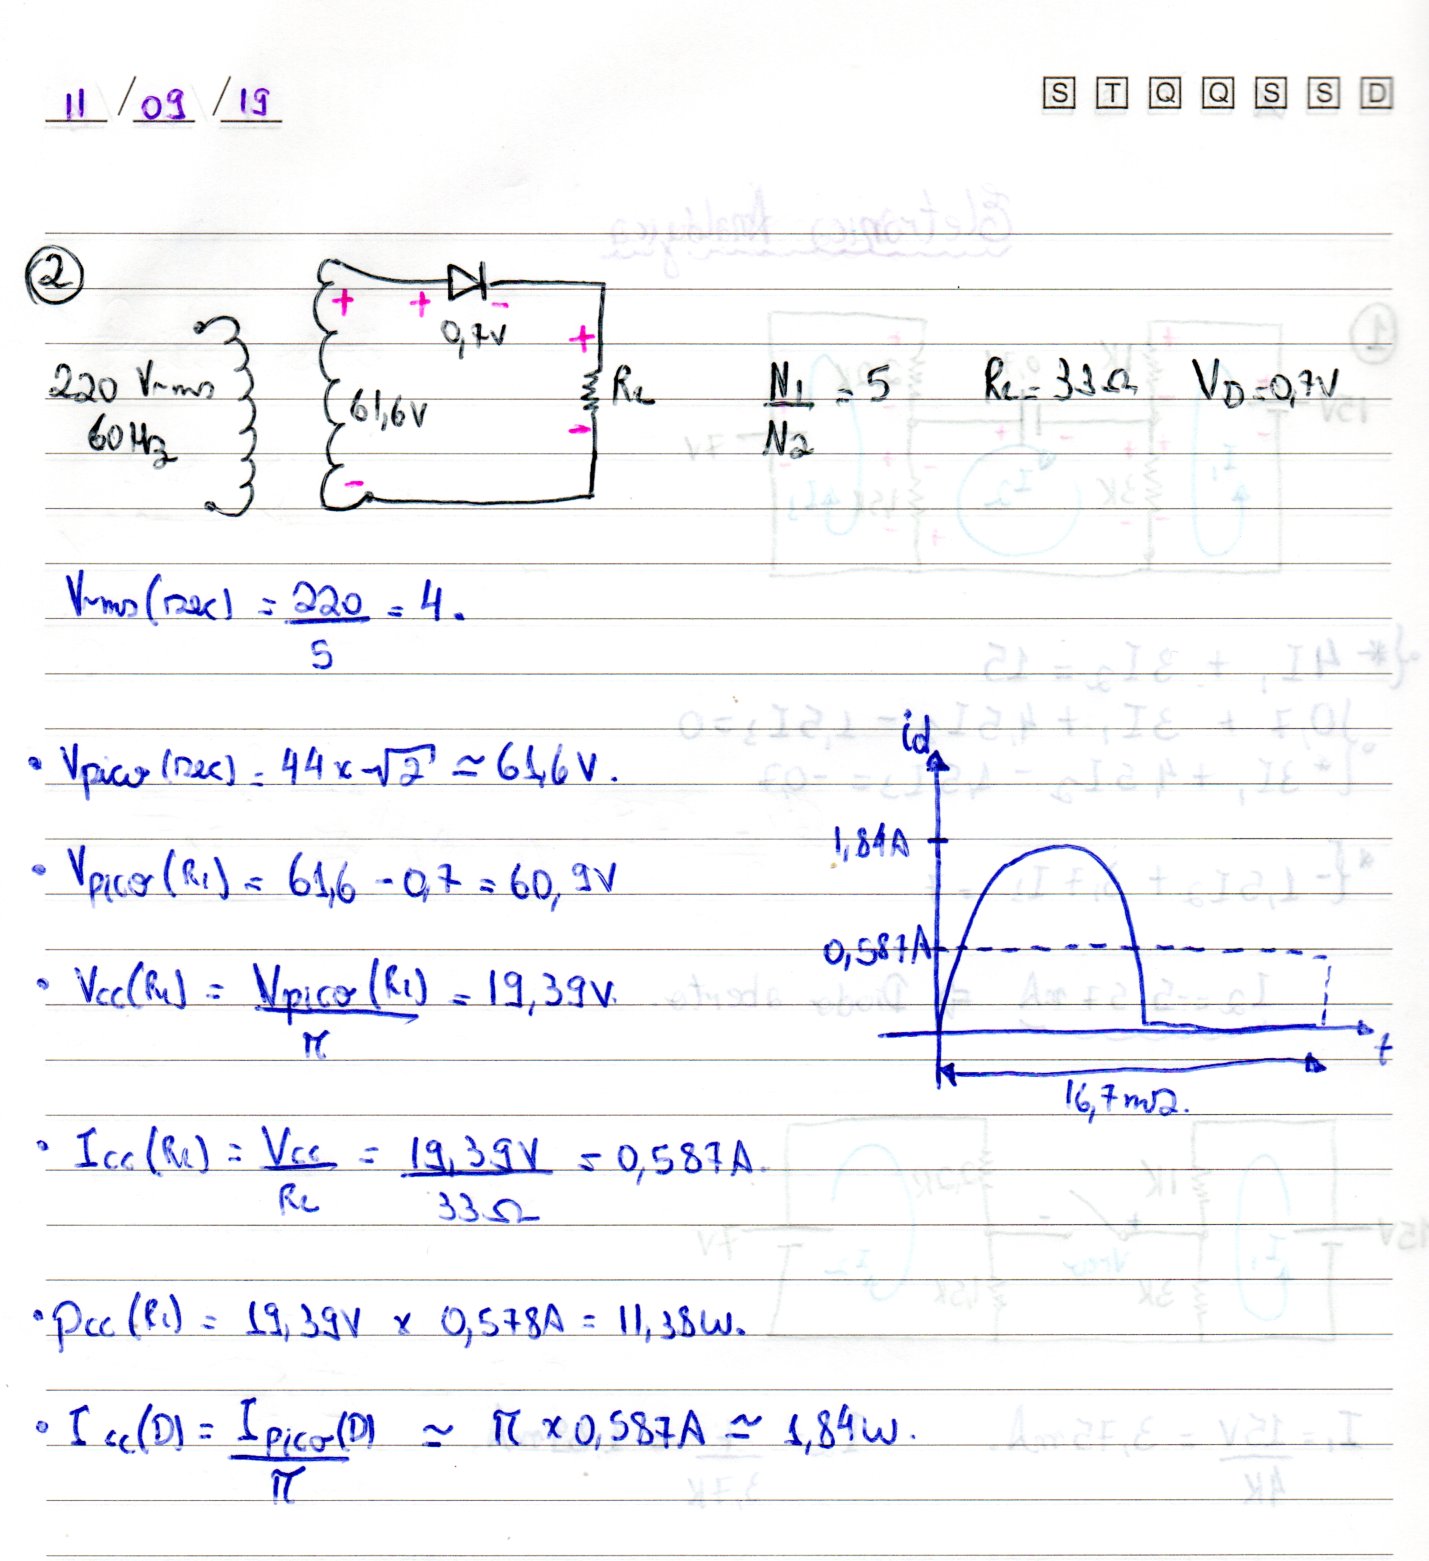 11 / 09 / 19
S T Q Q S S D
2
220 Vrms
60Hz
+ + -
0,7V
+
61,6V
RL
-
-
N1/N2 = 5 RL = 33Ω VD = 0,7V
Vrms(sec) = 220/5 = 4.
• Vpico (sec) = 44 x √2 ≃ 61,6V.
• Vpico (RL) = 61,6 - 0,7 = 60,9V
• Vcc(RL) = Vpico (RL)/π = 19,39V.
• Icc (RL) = Vcc/RL = 19,39V/33Ω = 0,587A.
• Pcc (RL) = 19,39V x 0,578A = 11,38W.
• Icc(D) = Ipico(D)/π ≃ π x 0,587A ≃ 1,84W.
id
1,84A
0,587A
t
16,7ms.